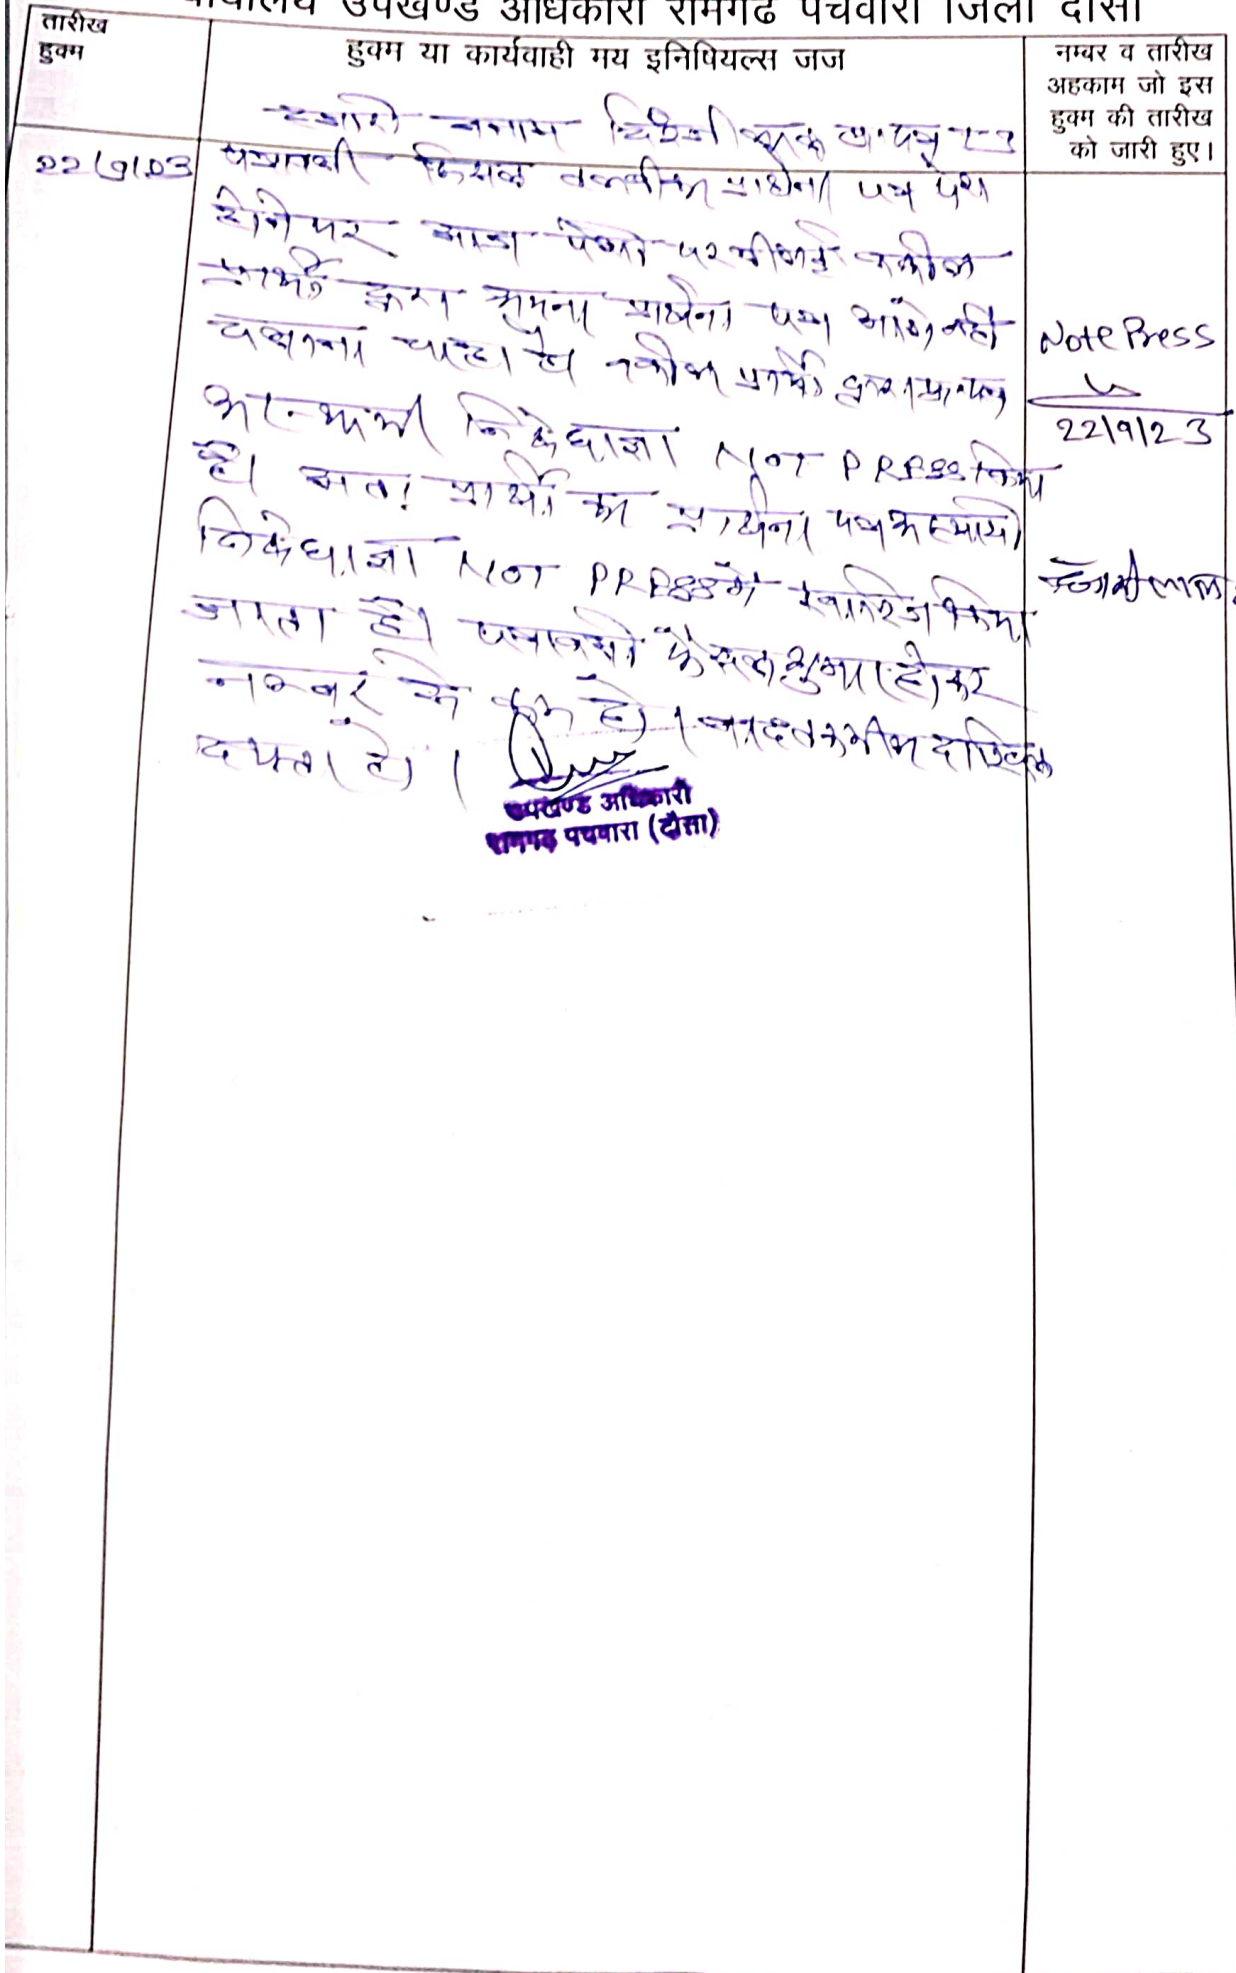 न्यायालय उपखण्ड अधिकारी रामगढ पचवारा जिला दौसा
तारीख
हुक्म
हुक्म या कार्यवाही मय इनिषियल्स जज
नम्बर व तारीख
अहकाम जो इस
हुक्म की तारीख
को जारी हुए।
बनाम
पत्रावली प्रार्थना पत्र पेश
होने पर आज पेशी पर ली गई वकील
प्रार्थी द्वारा अपना प्रार्थना पत्र आगे नही
चलाना चाहा है वकील प्रार्थी द्वारा
अस्थायी निषेधाज्ञा NOT PRESS किया
है। अतः प्रार्थी का प्रार्थना पत्र अस्थायी
निषेधाज्ञा NOT PRESS में खारिज किया
जाता है। पत्रावली फैसल शुमार होकर
नम्बर से कम हो।
दफ्तर हो।
Note Press
22/9/23
उपखण्ड अधिकारी
रामगढ़ पचवारा (दौसा)